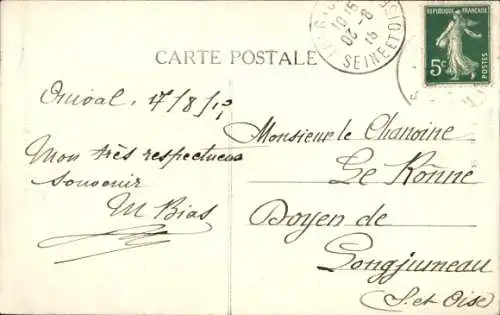 CARTE POSTALE
REPUBLIQUE FRANÇAISE
5c
POSTES
10 15
8
SEINE ET OISE
Onival, 17/8/13
Mon très respectueux
souvenir
M Bias
Monsieur le Chanoine
Le Rônne
Doyen de
Longjumeau
(S. et Oise)